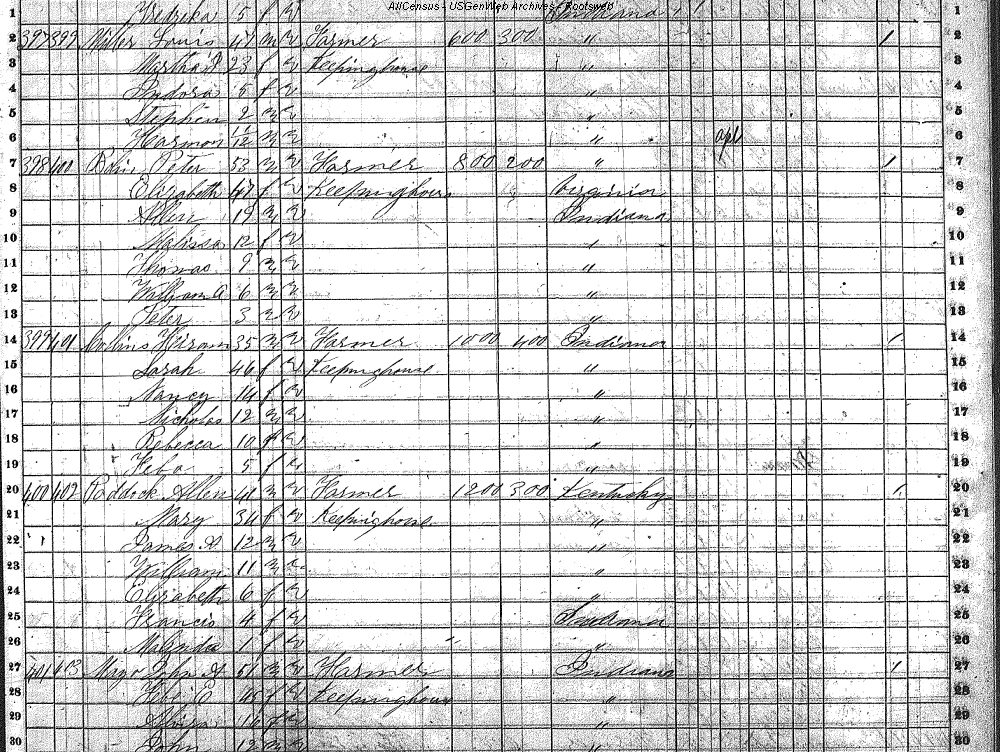 AllCensus - USGenWeb Archives - Rootsweb
1 Fredrika 5 f W Indiana 1 1 1
2 397 399 Miller Louis 47 m W Farmer 600 300 " 1 2
3 Martha 23 f W Keepinghouse " 3
4 5 f W " 4
5 Stephen 2 m W " 5
6 Harmon 11/12 m W " Apl 6
7 398 400 Peter 53 m W Farmer 800 200 " 1 7
8 Elizabeth 47 f W Keepinghouse Virginia 8
9 Allen 19 m W Indiana 9
10 Malissa 12 f W " 10
11 Thomas 9 m W " 11
12 William A 6 m W " 12
13 Peter 3 m W " 13
14 399 401 Collins Hiram 35 m W Farmer 1000 400 Indiana 1 14
15 Sarah 46 f W Keepinghouse " 15
16 Nancy 14 f W " 16
17 Nicholas 12 m W " 17
18 Rebecca 10 f W " 18
19 5 f W " 19
20 400 402 Paddock Allen 41 m W Farmer 1200 300 Kentucky 1 20
21 Mary 34 f W Keepinghouse " 21
22 James A 12 m W " 22
23 William 11 m W " 23
24 Elizabeth 6 f W " 24
25 Francis 4 f W Indiana 25
26 Malinda 1 f W " 26
27 401 403 John 51 m W Farmer Indiana 1 27
28 E 45 f W Keepinghouse " 28
29 16 f W " 29
30 John 12 m W " 30